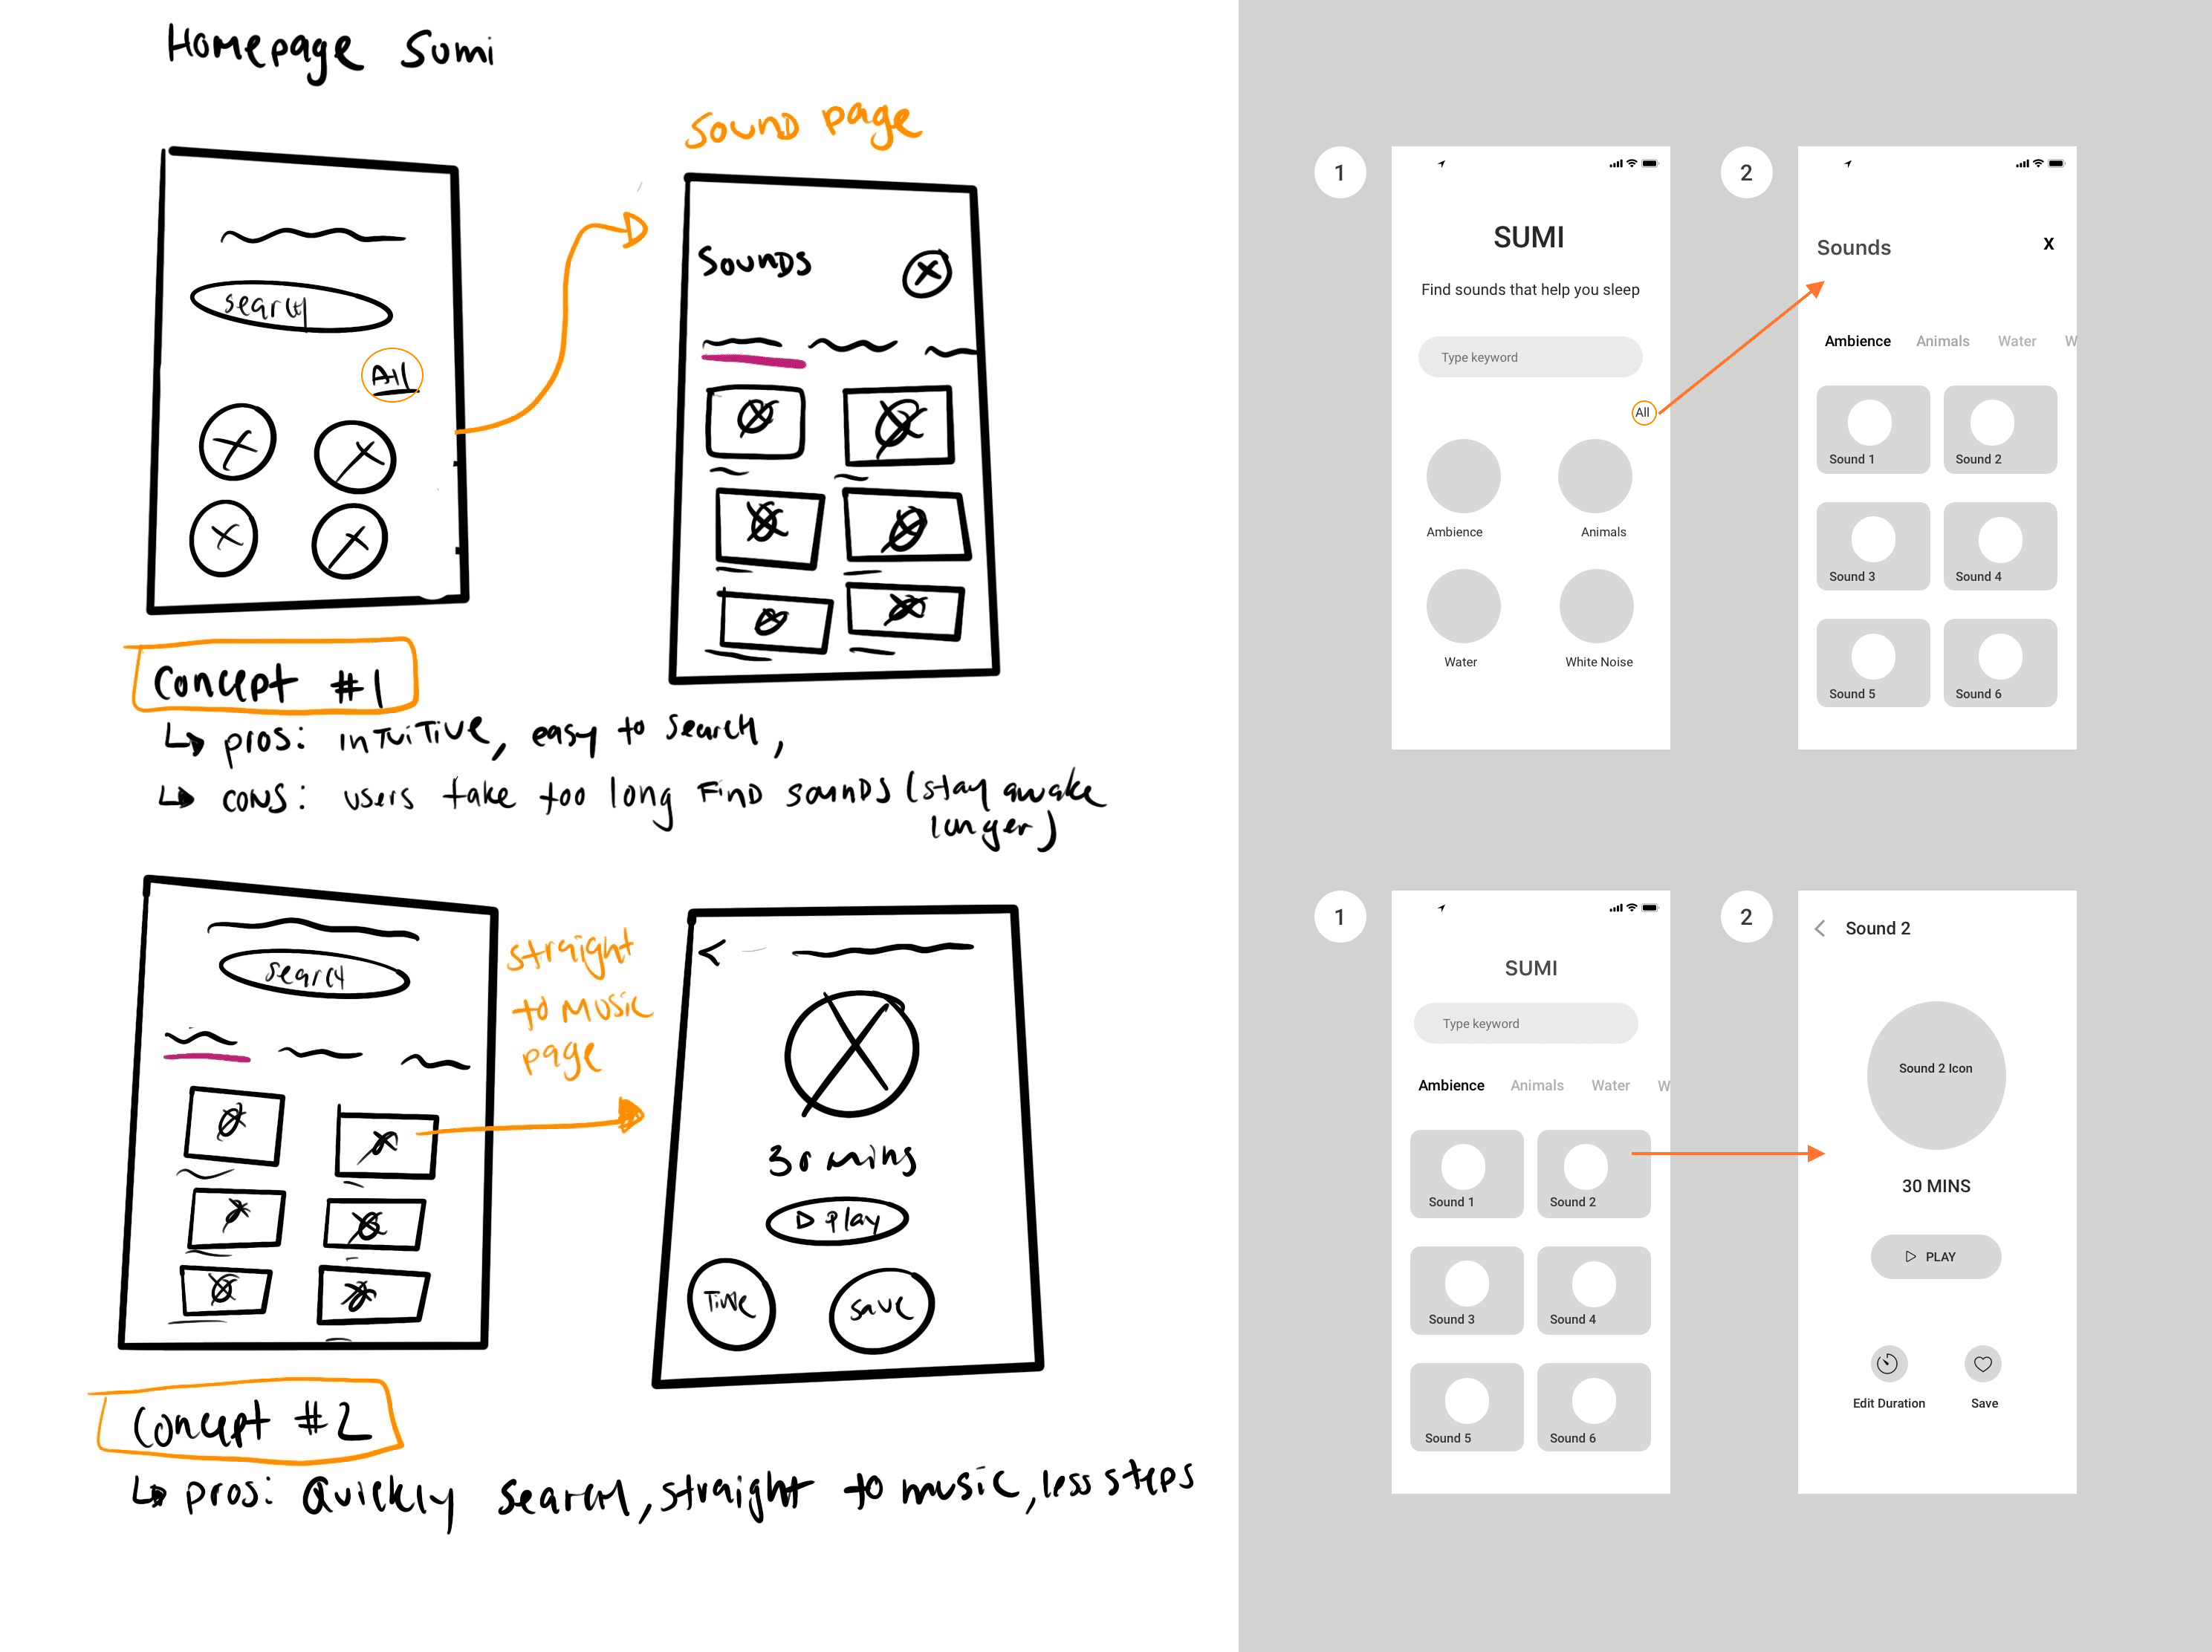 Homepage Sumi
Sound page
search
All
Sounds
Concept #1
pros: intuitive, easy to search,
cons: users take too long find sounds (stay awake
longer)
search
straight
to music
page
<
30 mins
play
Time
save
Concept #2
pros: Quickly search, straight to music, less steps
1
SUMI
Find sounds that help you sleep
Type keyword
All
Ambience
Animals
Water
White Noise
2
Sounds
X
Ambience Animals Water W
Sound 1
Sound 2
Sound 3
Sound 4
Sound 5
Sound 6
1
SUMI
Type keyword
Ambience Animals Water W
Sound 1
Sound 2
Sound 3
Sound 4
Sound 5
Sound 6
2
Sound 2
Sound 2 Icon
30 MINS
PLAY
Edit Duration
Save